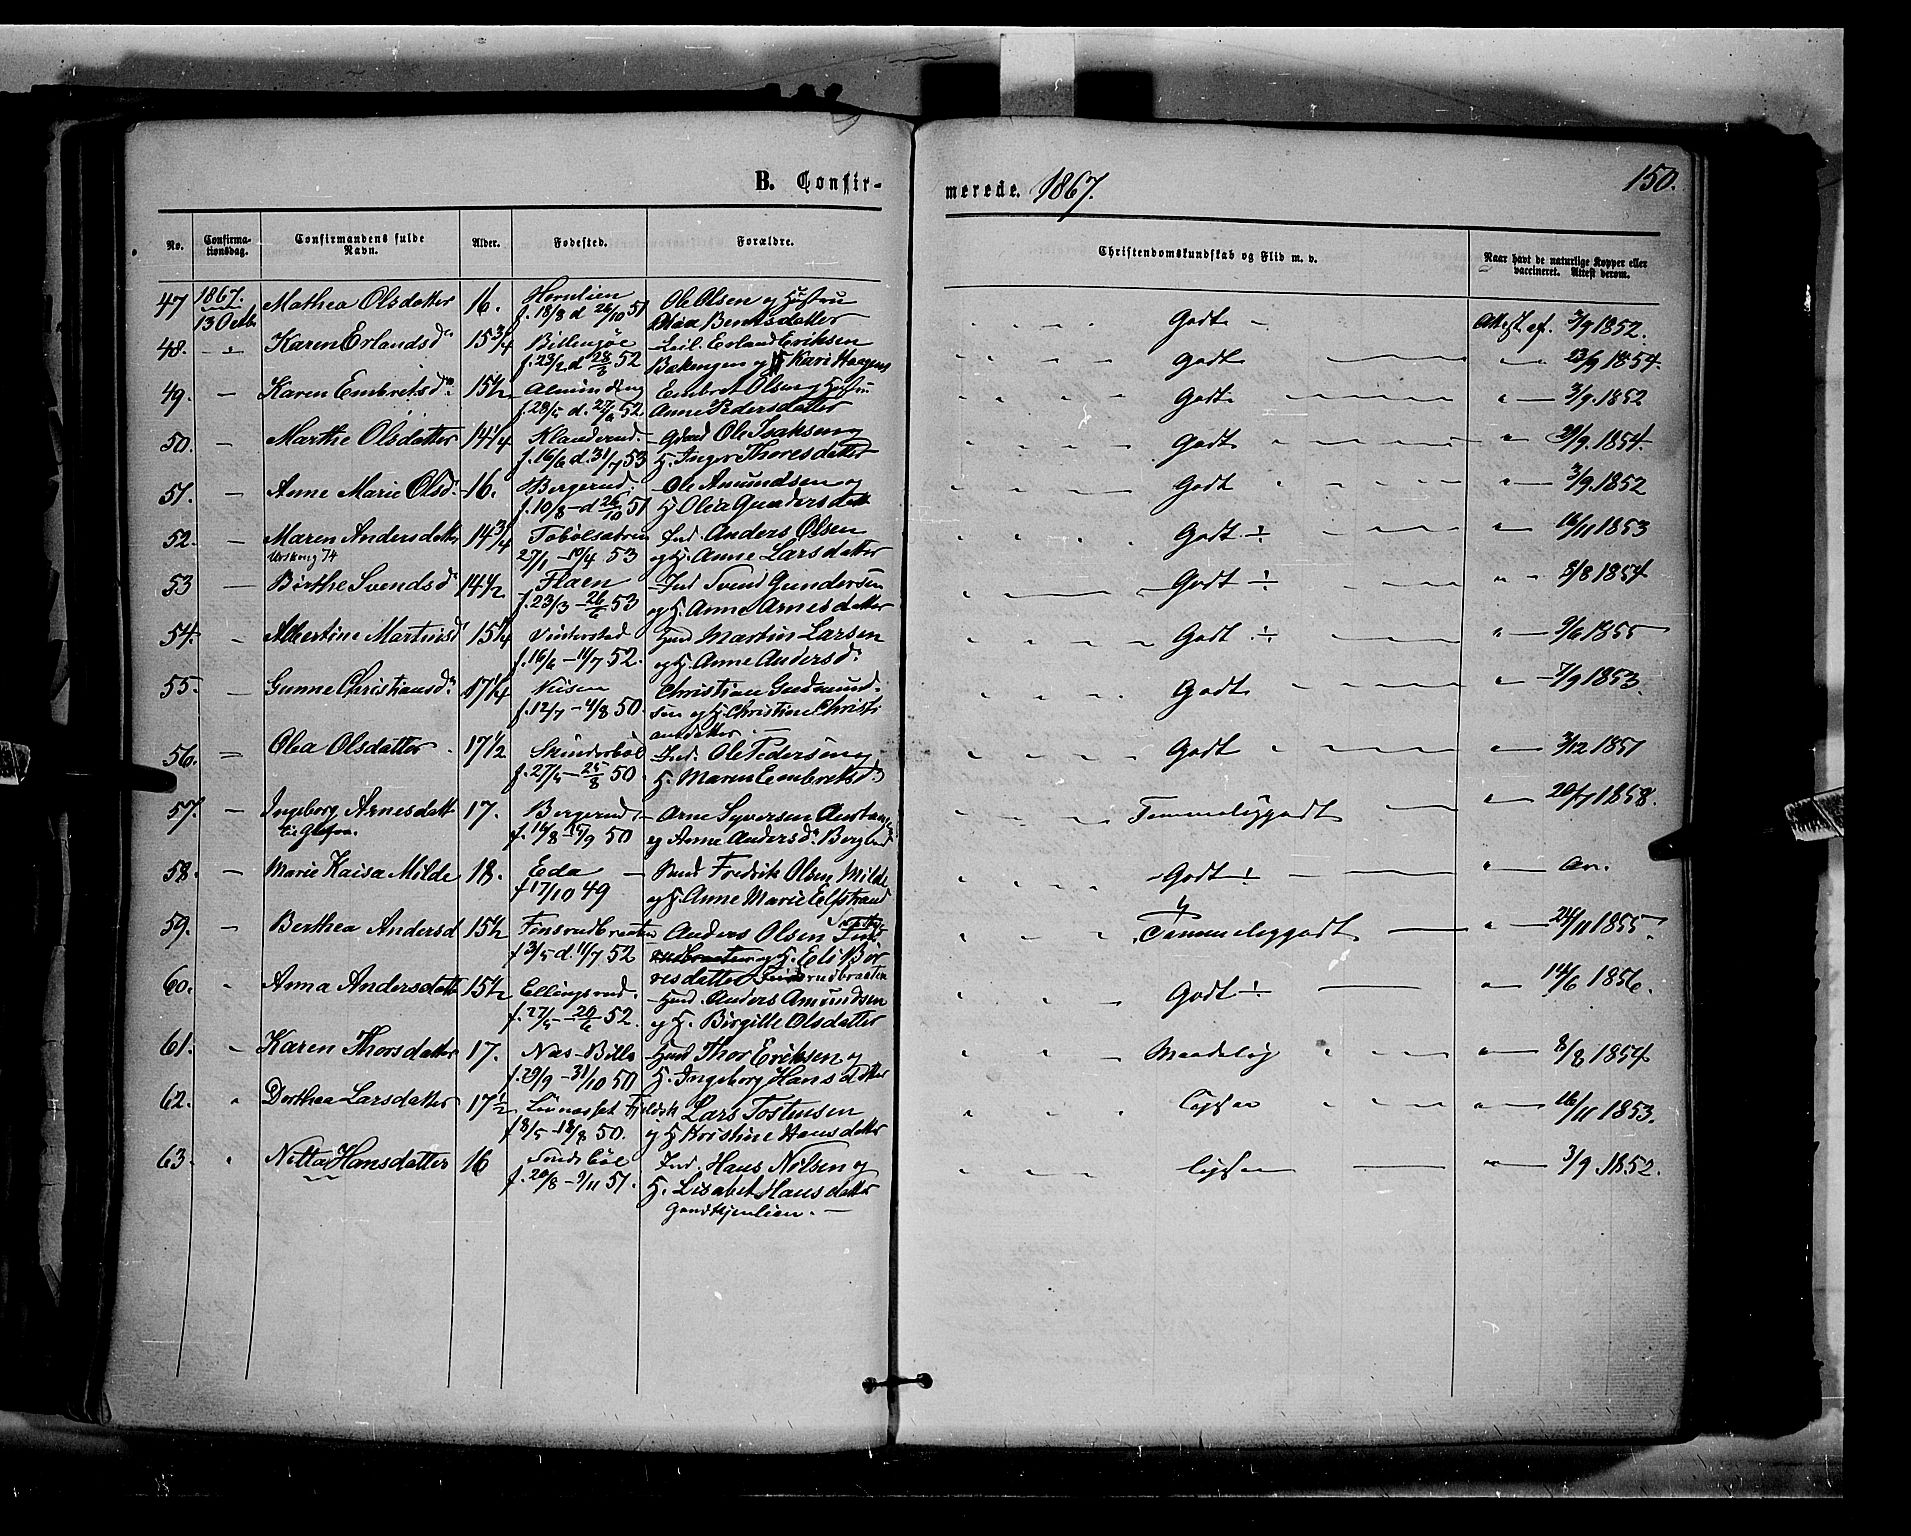 B. Confir-
merede. 1867.
150.
No.
Confirma-
tionsdag.
Confirmandens fulde
Navn.
Alder.
Fødested.
Forældre.
Christendomskundskab og Flid m. v.
Naar havt de naturlige Kopper eller
vaccineret. Attest derom.
47 1867. Mathea Olsdatter 16. Hornlien Ole Olsen og Hustru
13 Octb. f. 18/8 d 26/10 51 Berntsdatter
Godt Attest af. 3/9 1852.
48. Karen Erlandsd. 15 3/4 Erland Eriksen
f. 23/2 d 28/3 52 og H Kari
Godt 23/9 1854.
49. Karen Embretsd. 15 1/2 Embret Olsen og Hustru
f. 28/5 d. 27/6 52. Anne Pedersdatter
Godt 3/9. 1852
50. Marthe Olsdatter 14 1/4 Klanderud. Ole Isaksen og
f. 16/6 d. 31/7 53 H. Inger Thoresdatter
Godt 29/9. 1854.
51. Anne Marie Olsd. 16. Bergerud. Ole Amundsen og
f. 10/8 d 26/10 51 H Olea Gundersdatt
Godt 3/9. 1852
52. Maren Andersdatter 14 3/4 Ind. Anders Olsen
Urskoug 74 27/1 10/4 53 og H. Anne Larsdatter
Godt ÷ 16/11 1853
53 Børthe Svendsd 14 1/2 Flaen Ind Svend Gundersen
f. 23/3 26/6 53 og H. Anne Arnesdatter
Godt ÷ 5/8 1854
54. Albertine Martinsd 15 1/4 Huusd Martin Larsen
f. 16/6 11/7 52. og H. Anne Andersd.
Godt ÷ 9/6 1855
55. Gunne Christiansd. 17 1/4 Christian Gudmund-
f. 12/7 4/8 50. sen og H. Christine Christi
ansdatter
Godt 7/9 1853.
56. Olea Olsdatter 17 1/2 Skinderbøl Ind. Ole Pedersen og
f. 27/5 25/8 50. H. Maren Embretsd.
Godt 3/12 1851
57. Ingeborg Arnesdatt 17. Bergerud Arne Syversen
f. 16/8 15/9 50 og Anne Andersd.
Temmeliggodt 20/7 1858.
58. Marie Kaisa Milde 18. Eda Fredrik Olsen Milde
f 17/10 49 og H. Anne Marie Elfstrand
Godt ÷
59. Berthea Andersd 15 1/2 Finsrudbraaten Anders Olsen
f 3/5 d. 11/7 52 og H. Eli Bør
resdatter Finsrudbraaten
Temmeliggodt 24/11 1855.
60. Anna Andersdatt 15 1/2 Ellingsrud. Huusd. Anders Amundsen
f. 27/5 20/6 52. og H. Birgitte Olsdatter
Godt ÷ 14/6 1856.
61. Karen Thorsdatter 17. Næs-Bille Thor Eriksen og
f. 29/9 31/10 50 H. Ingeborg Hansdatter
Maadelig 8/8 1854
62. Dorthea Larsdatter 17 1/2 Lars Tostensen
f 8/5 18/8 50. og H Kristine Hansdatter
16/11 1853.
63. Netta Hansdatter 16 Ind. Hans Nilsen og
f. 20/8 9/11 51. H. Lisabet Hansdatter
3/9. 1852.